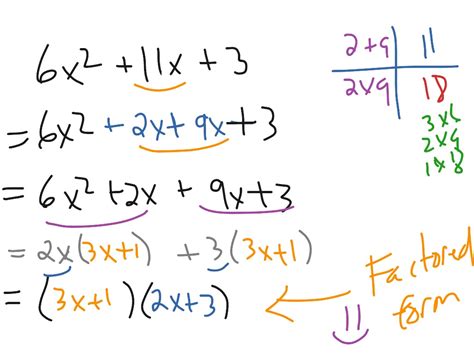 6x² + 11x + 3
= 6x² + 2x + 9x + 3
= 6x² + 2x + 9x + 3
= 2x(3x+1) + 3(3x+1)
= (3x+1)(2x+3)
2+9 | 11
2x9 | 18
3x6
2x9
1x18
Factored
form